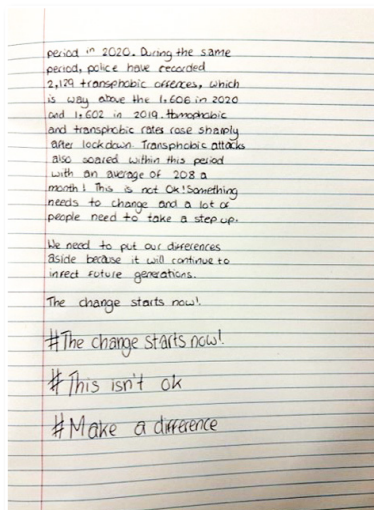 period in 2020. During the same
period, police have recorded
2,129 transphobic offences, which
is way above the 1,606 in 2020
and 1,602 in 2019. Homophobic
and transphobic rates rose sharply
after lockdown. Transphobic attacks
also soared within this period
with an average of 208 a
month! This is not Ok! Something
needs to change and a lot of
people need to take a step up.
We need to put our differences
aside because it will continue to
infect future generations.
The change starts now!
#The change starts now!
#This isn't ok
#Make a difference